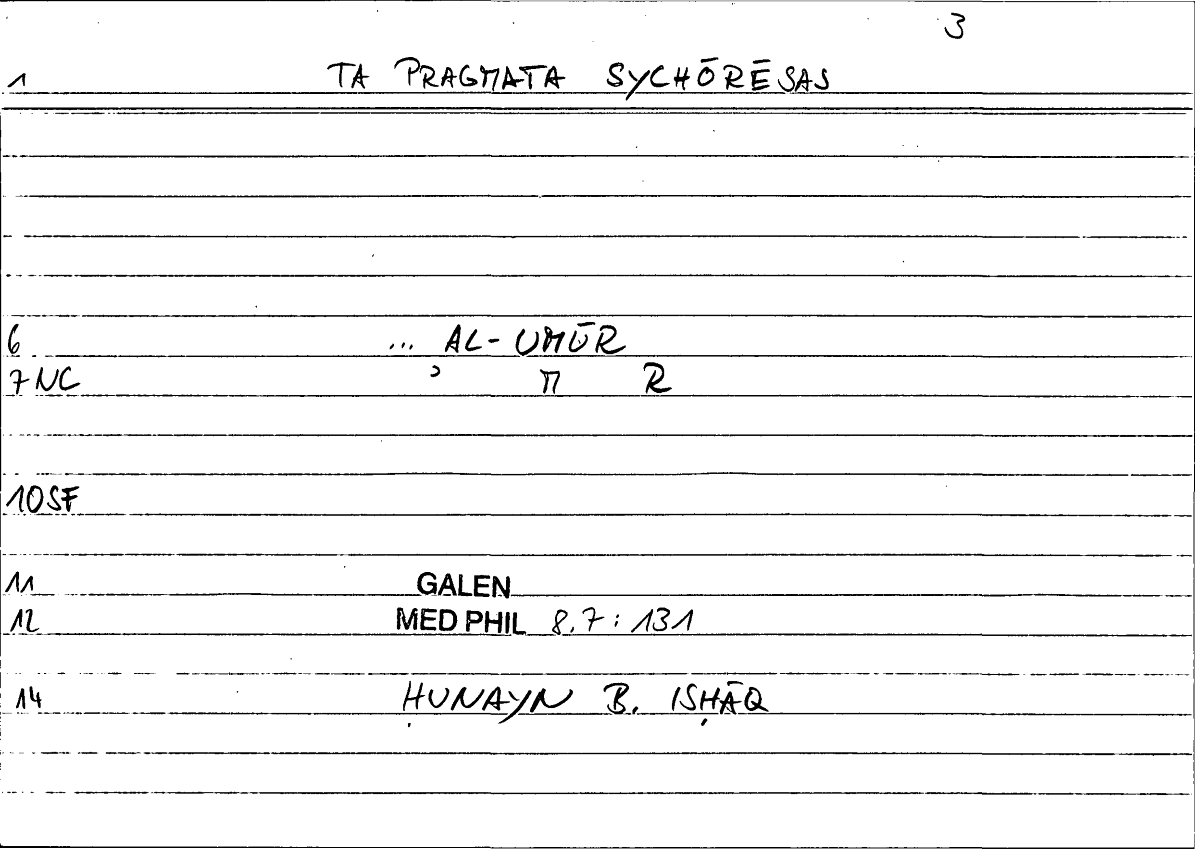 3
1 TA PRAGMATA SYCHŌRĒSAS
6 ... AL-UMŪR
7 NC ʾ M R
10 SF
11 GALEN
12 MED PHIL 8.7: 131
14 ḤUNAYN B. ISḤĀQ